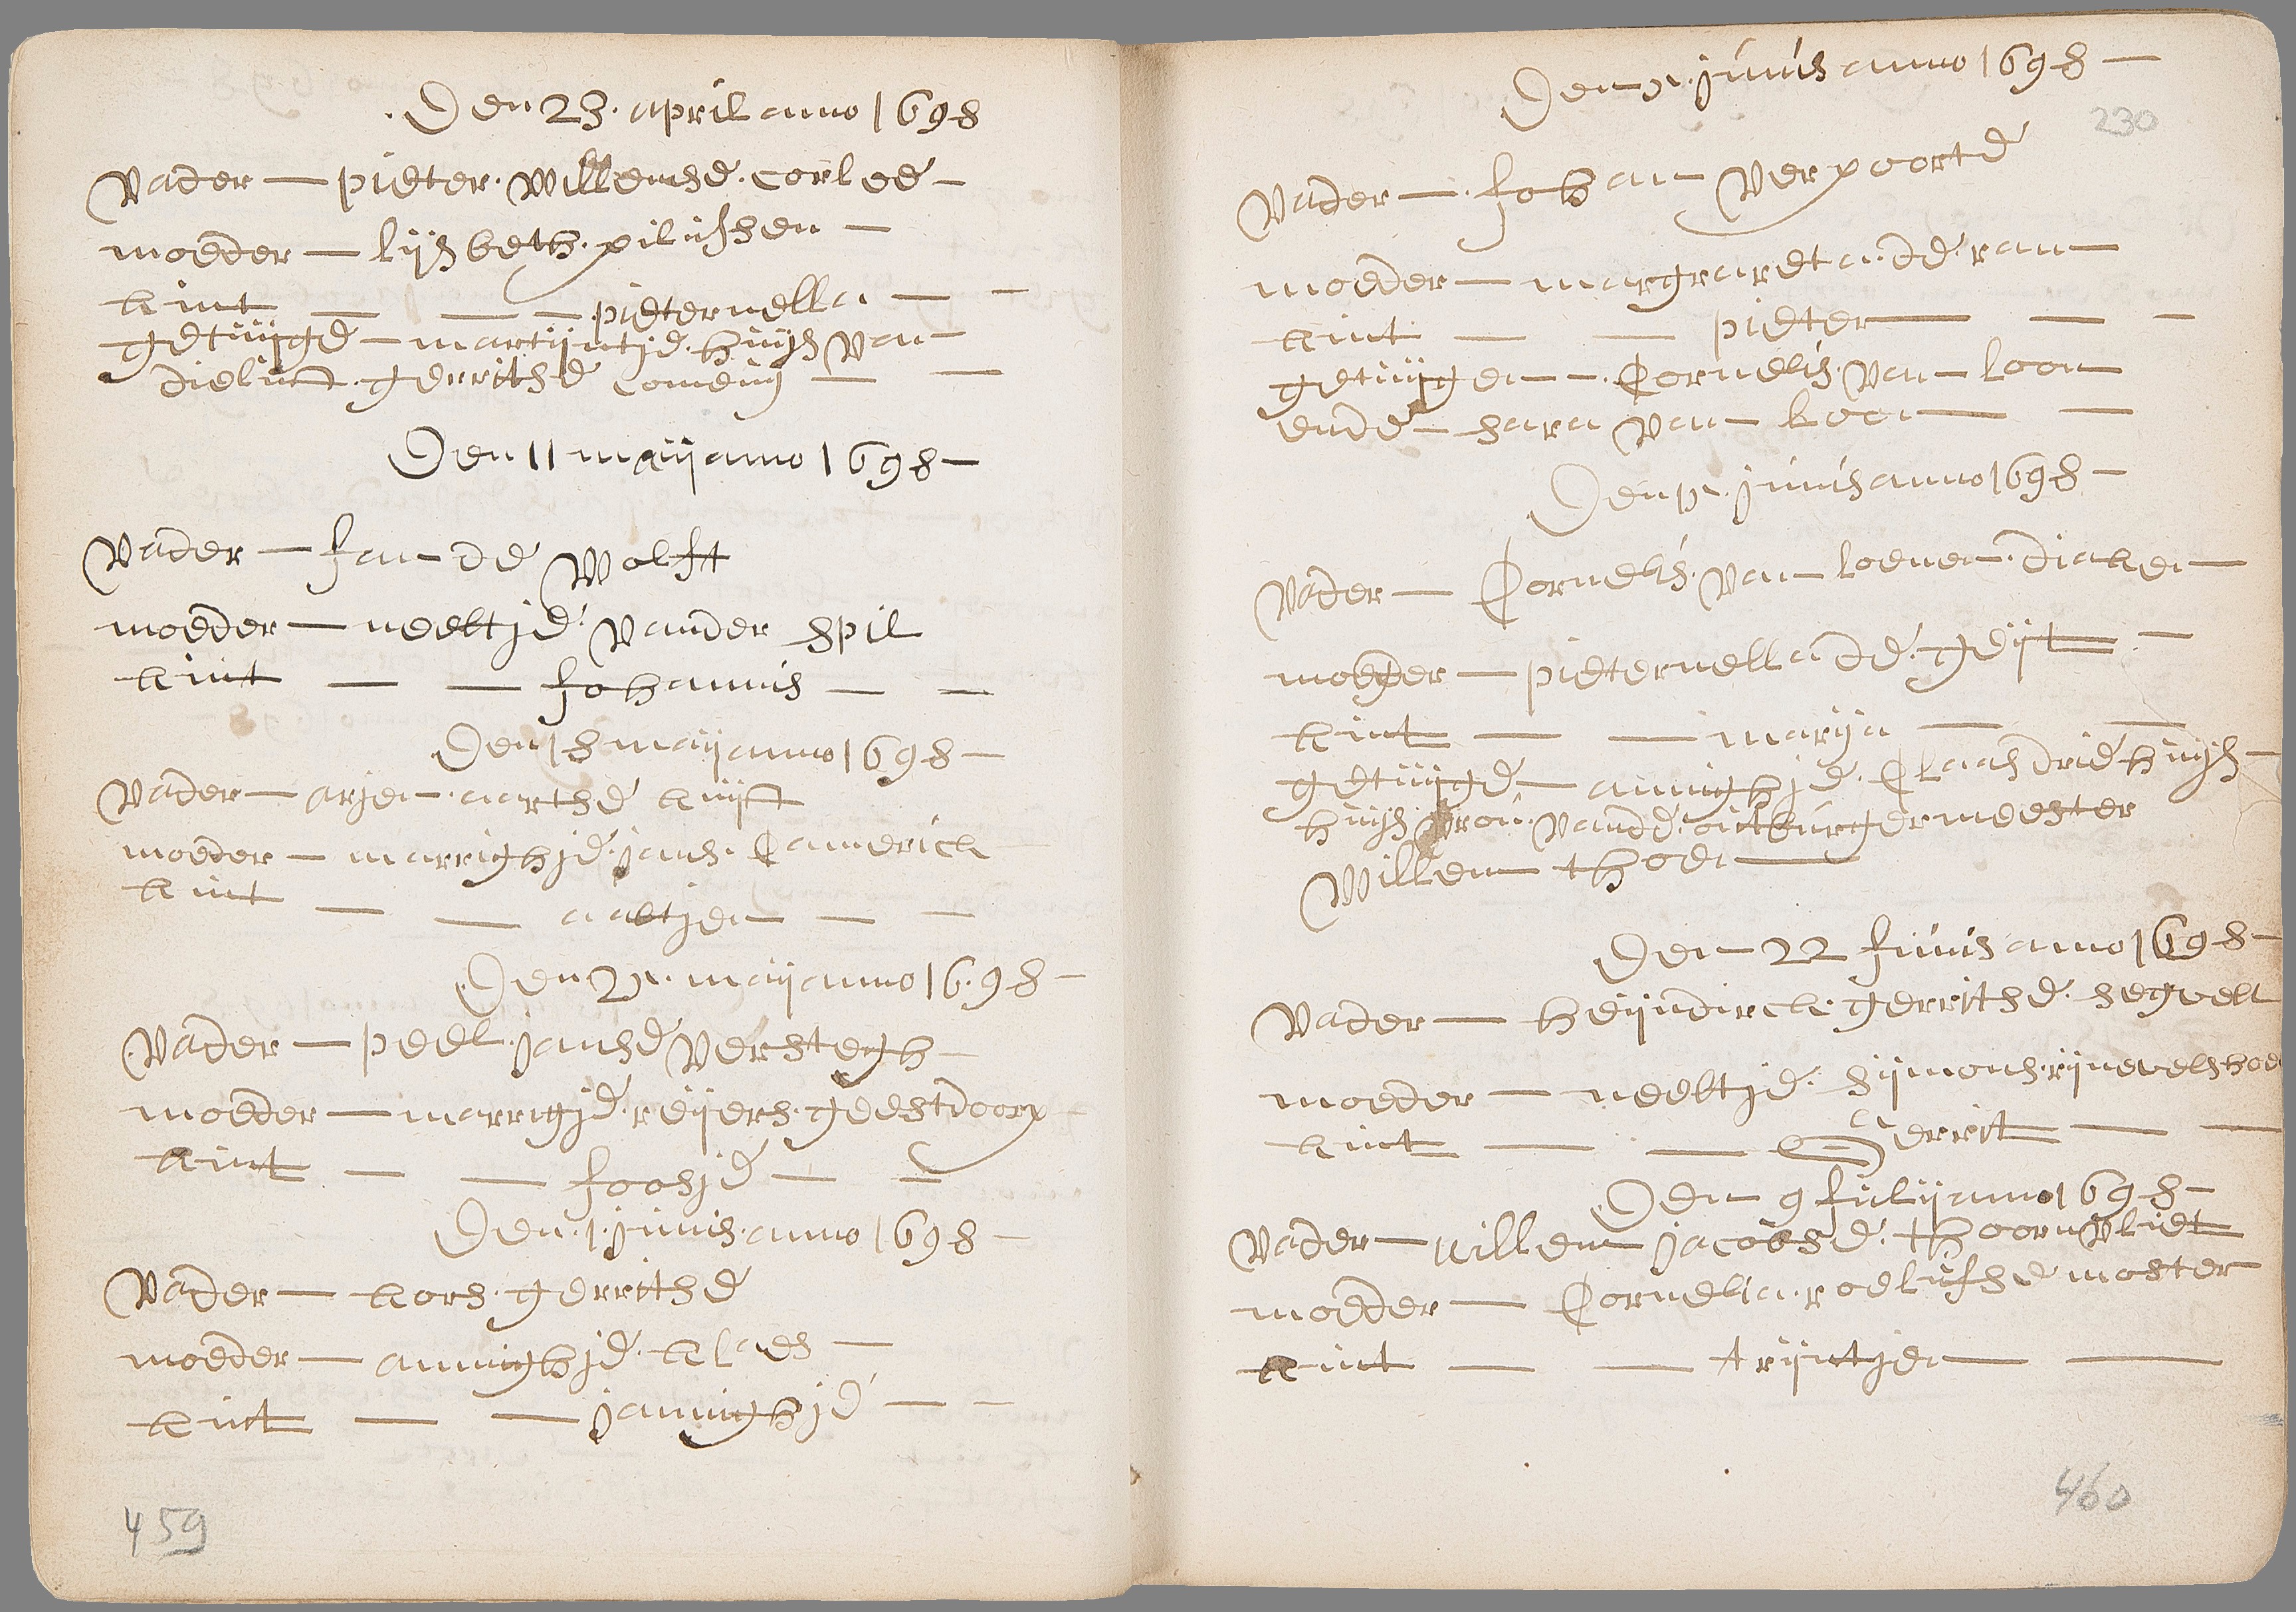 Den 23. april anno 1698
Vader — pieter. Willemse. corlee —
moeder — lijsbeth. pilussen —
kint — — — pieternella — —
getuijge — martijntje. huijs van —
dielint. gerritse comeny — —
Den 11 maij anno 1698 —
Vader — Jan de Wolft
moeder — neeltje. vander spil
kint — — Johannis — —
Den 18 maij anno 1698 —
Vader — arjen. aartse kuijft
moeder — marrighje. jans. Camerick
kint — — aaltjen — —
Den 25. maij anno 16.98 —
Vader — peel. janse Verstegh —
moeder — marrigje. reijers. geestdoorp —
kint — — Joosje — —
Den. 1. junis. anno 1698 —
Vader — kors. gerritse
moeder — annighje. klaes —
kint — — jannighje — —
459
Den 5. junis anno 1698 —
230
Vader — Johan Verpoorte
moeder — margrareta. de. ran —
kint — — pieter — — —
getuijgen — Cornelis. van loon
ende — sara van loon — —
Den 15. junis anno 1698 —
Vader — Cornelis. van loenen. diaken —
moeder — pieternella de. geijt —
kint — — marija — —
getuijge — annighje. Claas driehuijs —
huijsvrou. vande. outburgermeester
Willem thoen —
Den 22 Junis anno 1698 —
Vader — heijndirck. gerritse. segvelt
moeder — neeltje. sijmons. rijnevelshoe
kint — — Gerrit — —
Den 9 Julij anno 1698 —
Vader — willem jacobse. thoornvliet
moeder — Cornelia. roelufse moster
kint — — trijntjen — —
460